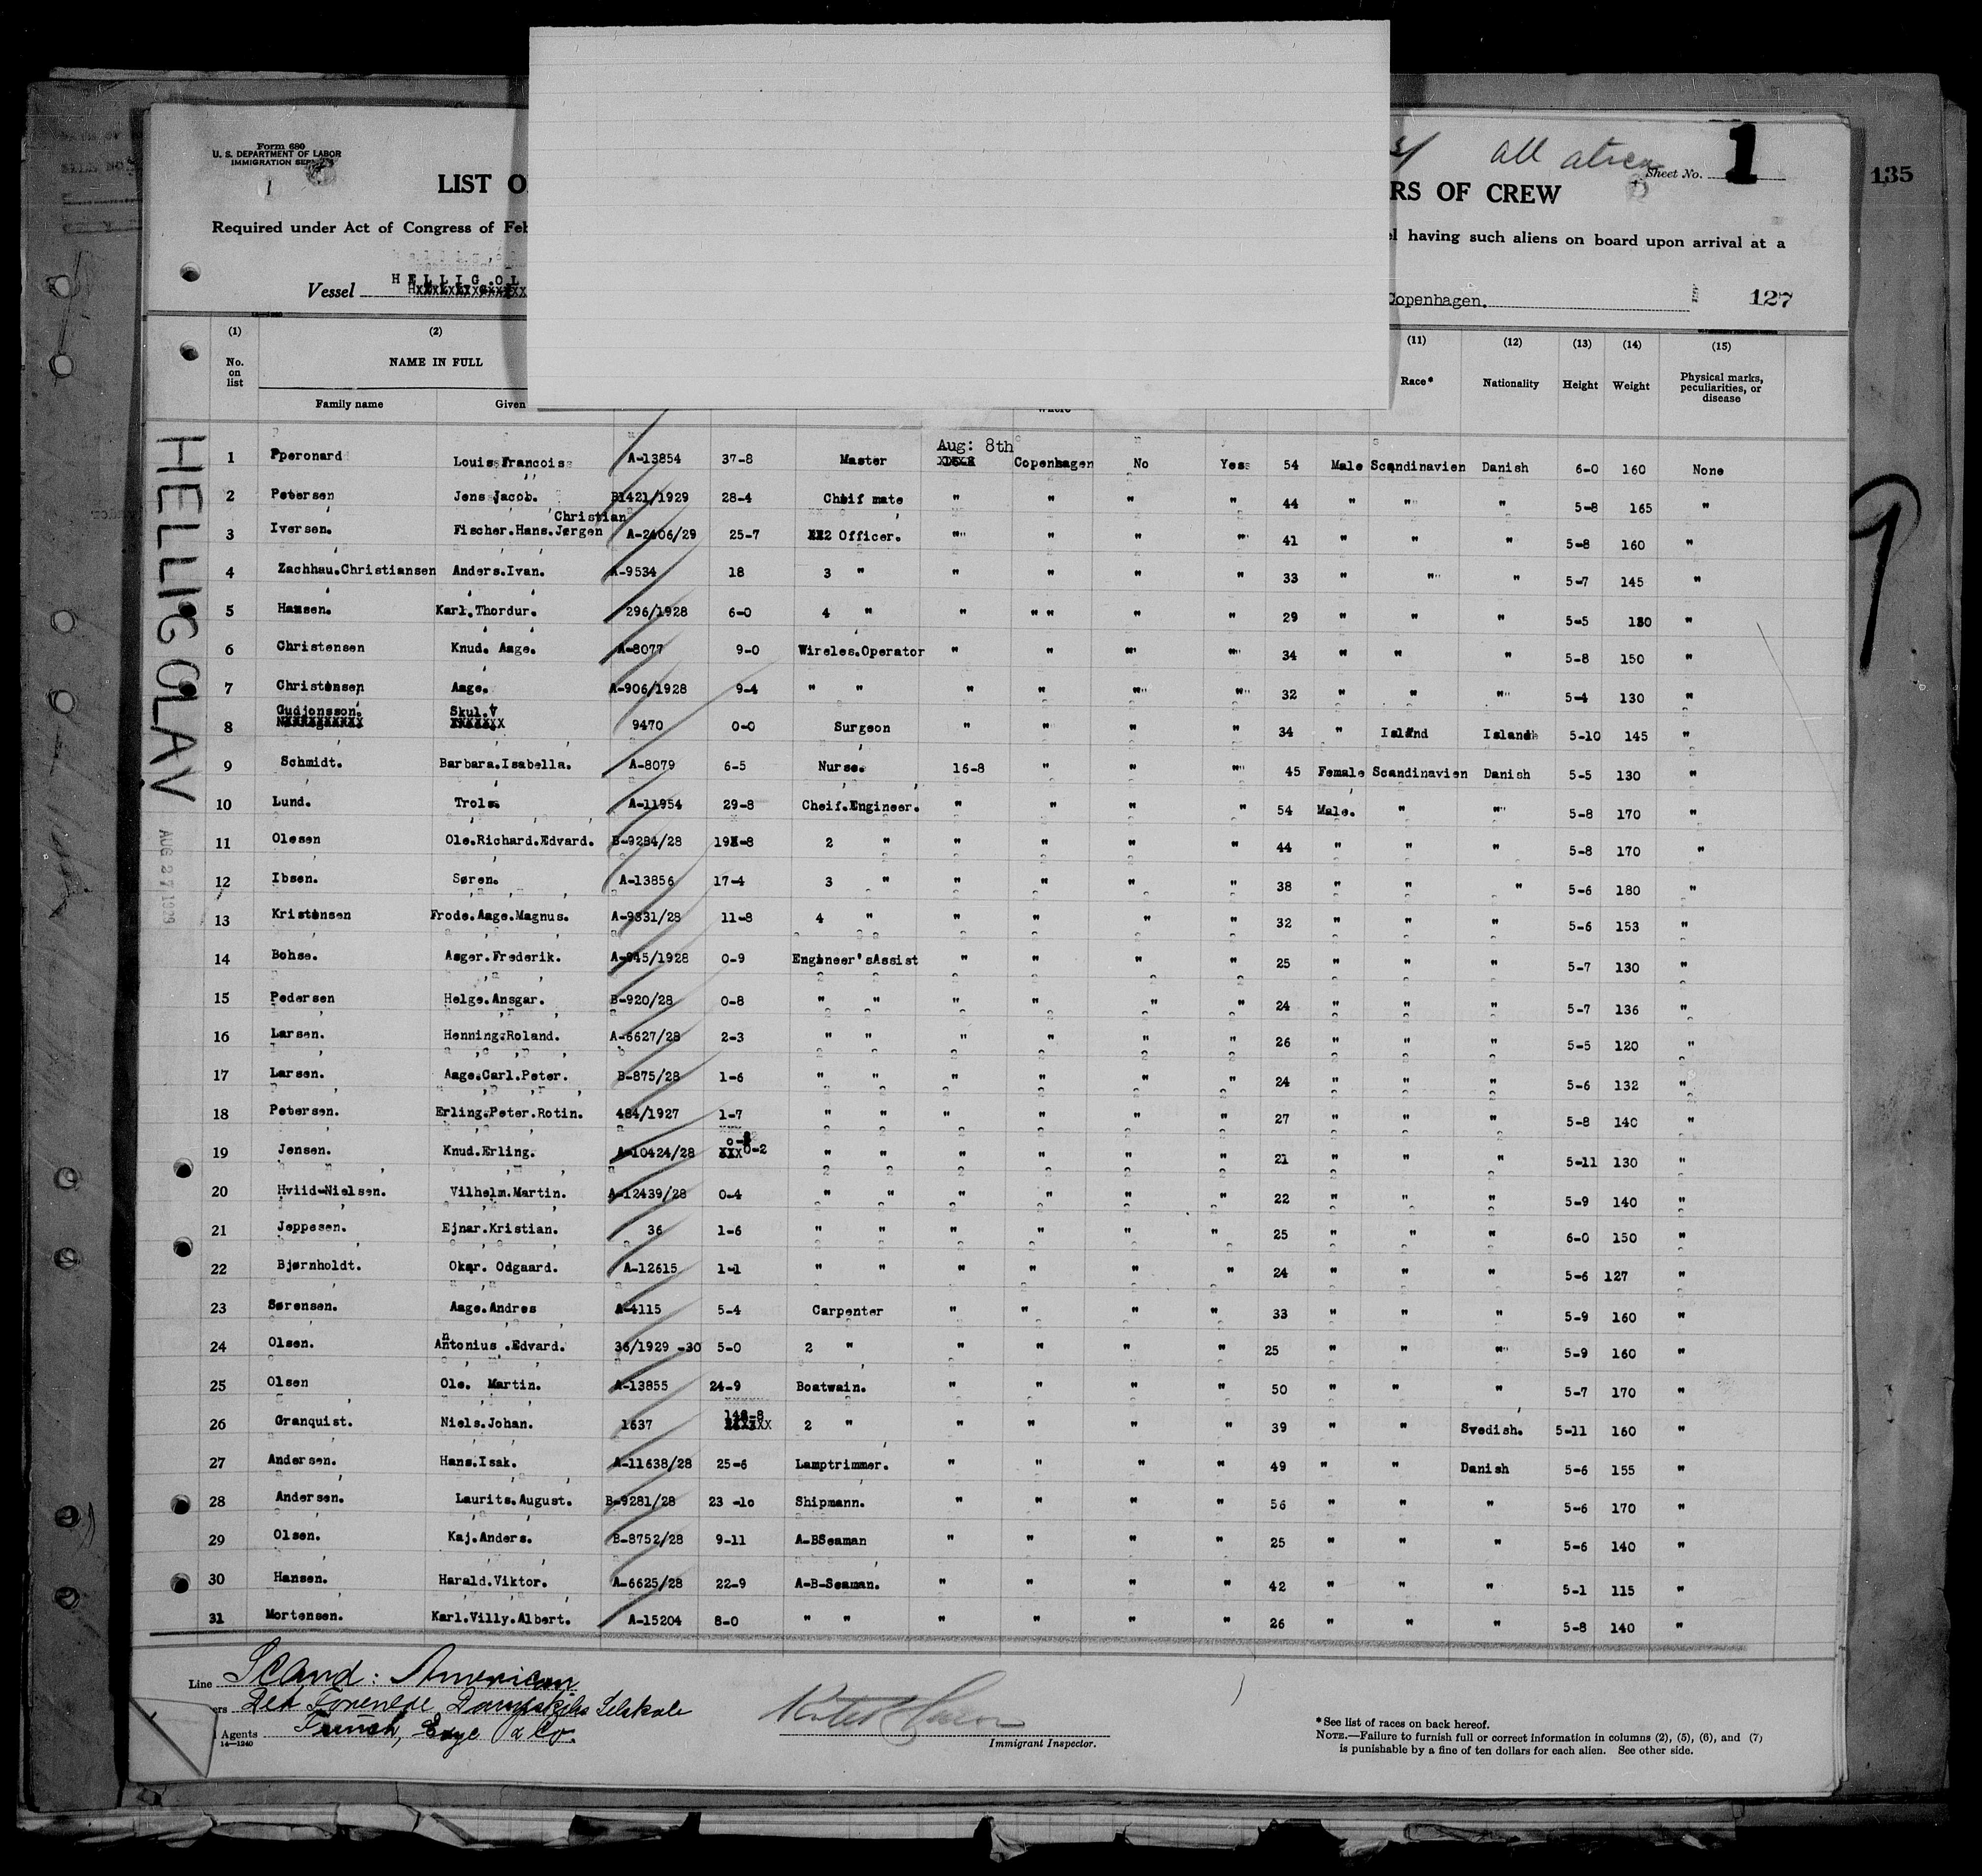 Form 680
U. S. DEPARTMENT OF LABOR
IMMIGRATION
1
all
Sheet No. 1
135
LIST O
RS OF CREW
Required under Act of Congress of Feb
el having such aliens on board upon arrival at a
Vessel HELLIG.OL
Copenhagen.
127
(1) (2) (11) (12) (13) (14) (15)
No. on list NAME IN FULL Race* Nationality Height Weight Physical marks, peculiarities, or disease
Family name Given where
HELLIG OLAV
AUG 27 1929
9
Aug: 8th
1 Pperonard Louis Francois A-13854 37-8 Master Copenhagen No Yes 54 Male Scandinavien Danish 6-0 160 None
2 Petersen Jens Jacob. B1421/1929 28-4 Cheif mate " " " " 44 " " " 5-8 165 "
Christian
3 Iversen. Fischer.Hans.Jørgen A-2406/29 25-7 2 Officer. " " " " 41 " " " 5-8 160 "
4 Zachhau.Christiansen Anders.Ivan. A-9534 18 3 " " " " " 33 " " " 5-7 145 "
5 Hansen. Karl.Thordur. 296/1928 6-0 4 " " " " " " 29 " " " 5-5 130 "
6 Christensen Knud. Aage. A-8077 9-0 Wireles.Operator " " " " 34 " " " 5-8 150 "
7 Christensen Aage. A-906/1928 9-4 " " " " " " 32 " " " 5-4 130 "
8 Gudjonsson. Skul.V 9470 0-0 Surgeon " " " " 34 " Island Islandh 5-10 145 "
9 Schmidt. Barbara.Isabella. A-8079 6-5 Nurse. 16-8 " " " 45 Female Scandinavien Danish 5-5 130 "
10 Lund. Trols A-11954 29-8 Cheif.Engineer. " " " " 54 Male. " " 5-8 170 "
11 Olesen Ole.Richard.Edvard. B-9284/28 19-8 2 " " " " " 44 " " " 5-8 170 "
12 Ibsen. Søren. A-13856 17-4 3 " " " " " 38 " " " 5-6 180 "
13 Kristensen Frode.Aage.Magnus. A-9331/28 11-8 4 " " " " " 32 " " " 5-6 153 "
14 Bohse. Asger.Frederik. A-945/1928 0-9 Engineer'sAssist " " " " 25 " " " 5-7 130 "
15 Pedersen Helge.Ansgar. B-920/28 0-8 " " " " " " 24 " " " 5-7 136 "
16 Larsen. Henning.Roland. A-6627/28 2-3 " " " " " " 26 " " " 5-5 120 "
17 Larsen. Aage.Carl.Peter. B-875/28 1-6 " " " " " " 24 " " " 5-6 132 "
18 Petersen. Erling.Peter.Rotin. 484/1927 1-7 " " " " " " 27 " " " 5-8 140 "
19 Jensen. Knud.Erling. A-10424/28 0-2 " " " " " " 21 " " " 5-11 130 "
20 Hviid-Nielsen. Vilhelm.Martin. A-12439/28 0-4 " " " " " " 22 " " " 5-9 140 "
21 Jeppesen. Ejnar.Kristian. 36 1-6 " " " " " " 25 " " " 6-0 150 "
22 Bjørnholdt. Okar. Odgaard. A-12615 1-1 " " " " " " 24 " " " 5-6 127 "
23 Sørensen. Aage.Andres A-4115 5-4 Carpenter " " " " 33 " " " 5-9 160 "
24 Olsen. Antonius .Edvard. 36/1929 -30 5-0 2 " " " " " 25 " " " 5-9 160 "
25 Olsen Ole. Martin. A-13855 24-9 Boatwain. " " " " 50 " " " 5-7 170 "
26 Granquist. Niels.Johan. 1637 2 " " " " " 39 " " Svedish. 5-11 160 "
27 Andersen. Hans.Isak. A-11638/28 25-6 Lamptrimmer. " " " " 49 " " Danish 5-6 155 "
28 Andersen. Laurits.August. B-9281/28 23 -10 Shipmann. " " " " 56 " " " 5-6 170 "
29 Olsen. Kaj.Anders. B-8752/28 9-11 A-BSeaman " " " " 25 " " " 5-6 140 "
30 Hansen. Harald.Viktor. A-6625/28 22-9 A-B-Seaman. " " " " 42 " " " 5-1 115 "
31 Mortensen. Karl.Villy.Albert. A-15204 8-0 " " " " " " 26 " " " 5-8 140 "
Line Scand: American
ers Det Forenede Dampskibs Selskab
Agents Funch, Edye & Co.
14—1240
Immigrant Inspector.
*See list of races on back hereof.
NOTE.—Failure to furnish full or correct information in columns (2), (5), (6), and (7)
is punishable by a fine of ten dollars for each alien. See other side.